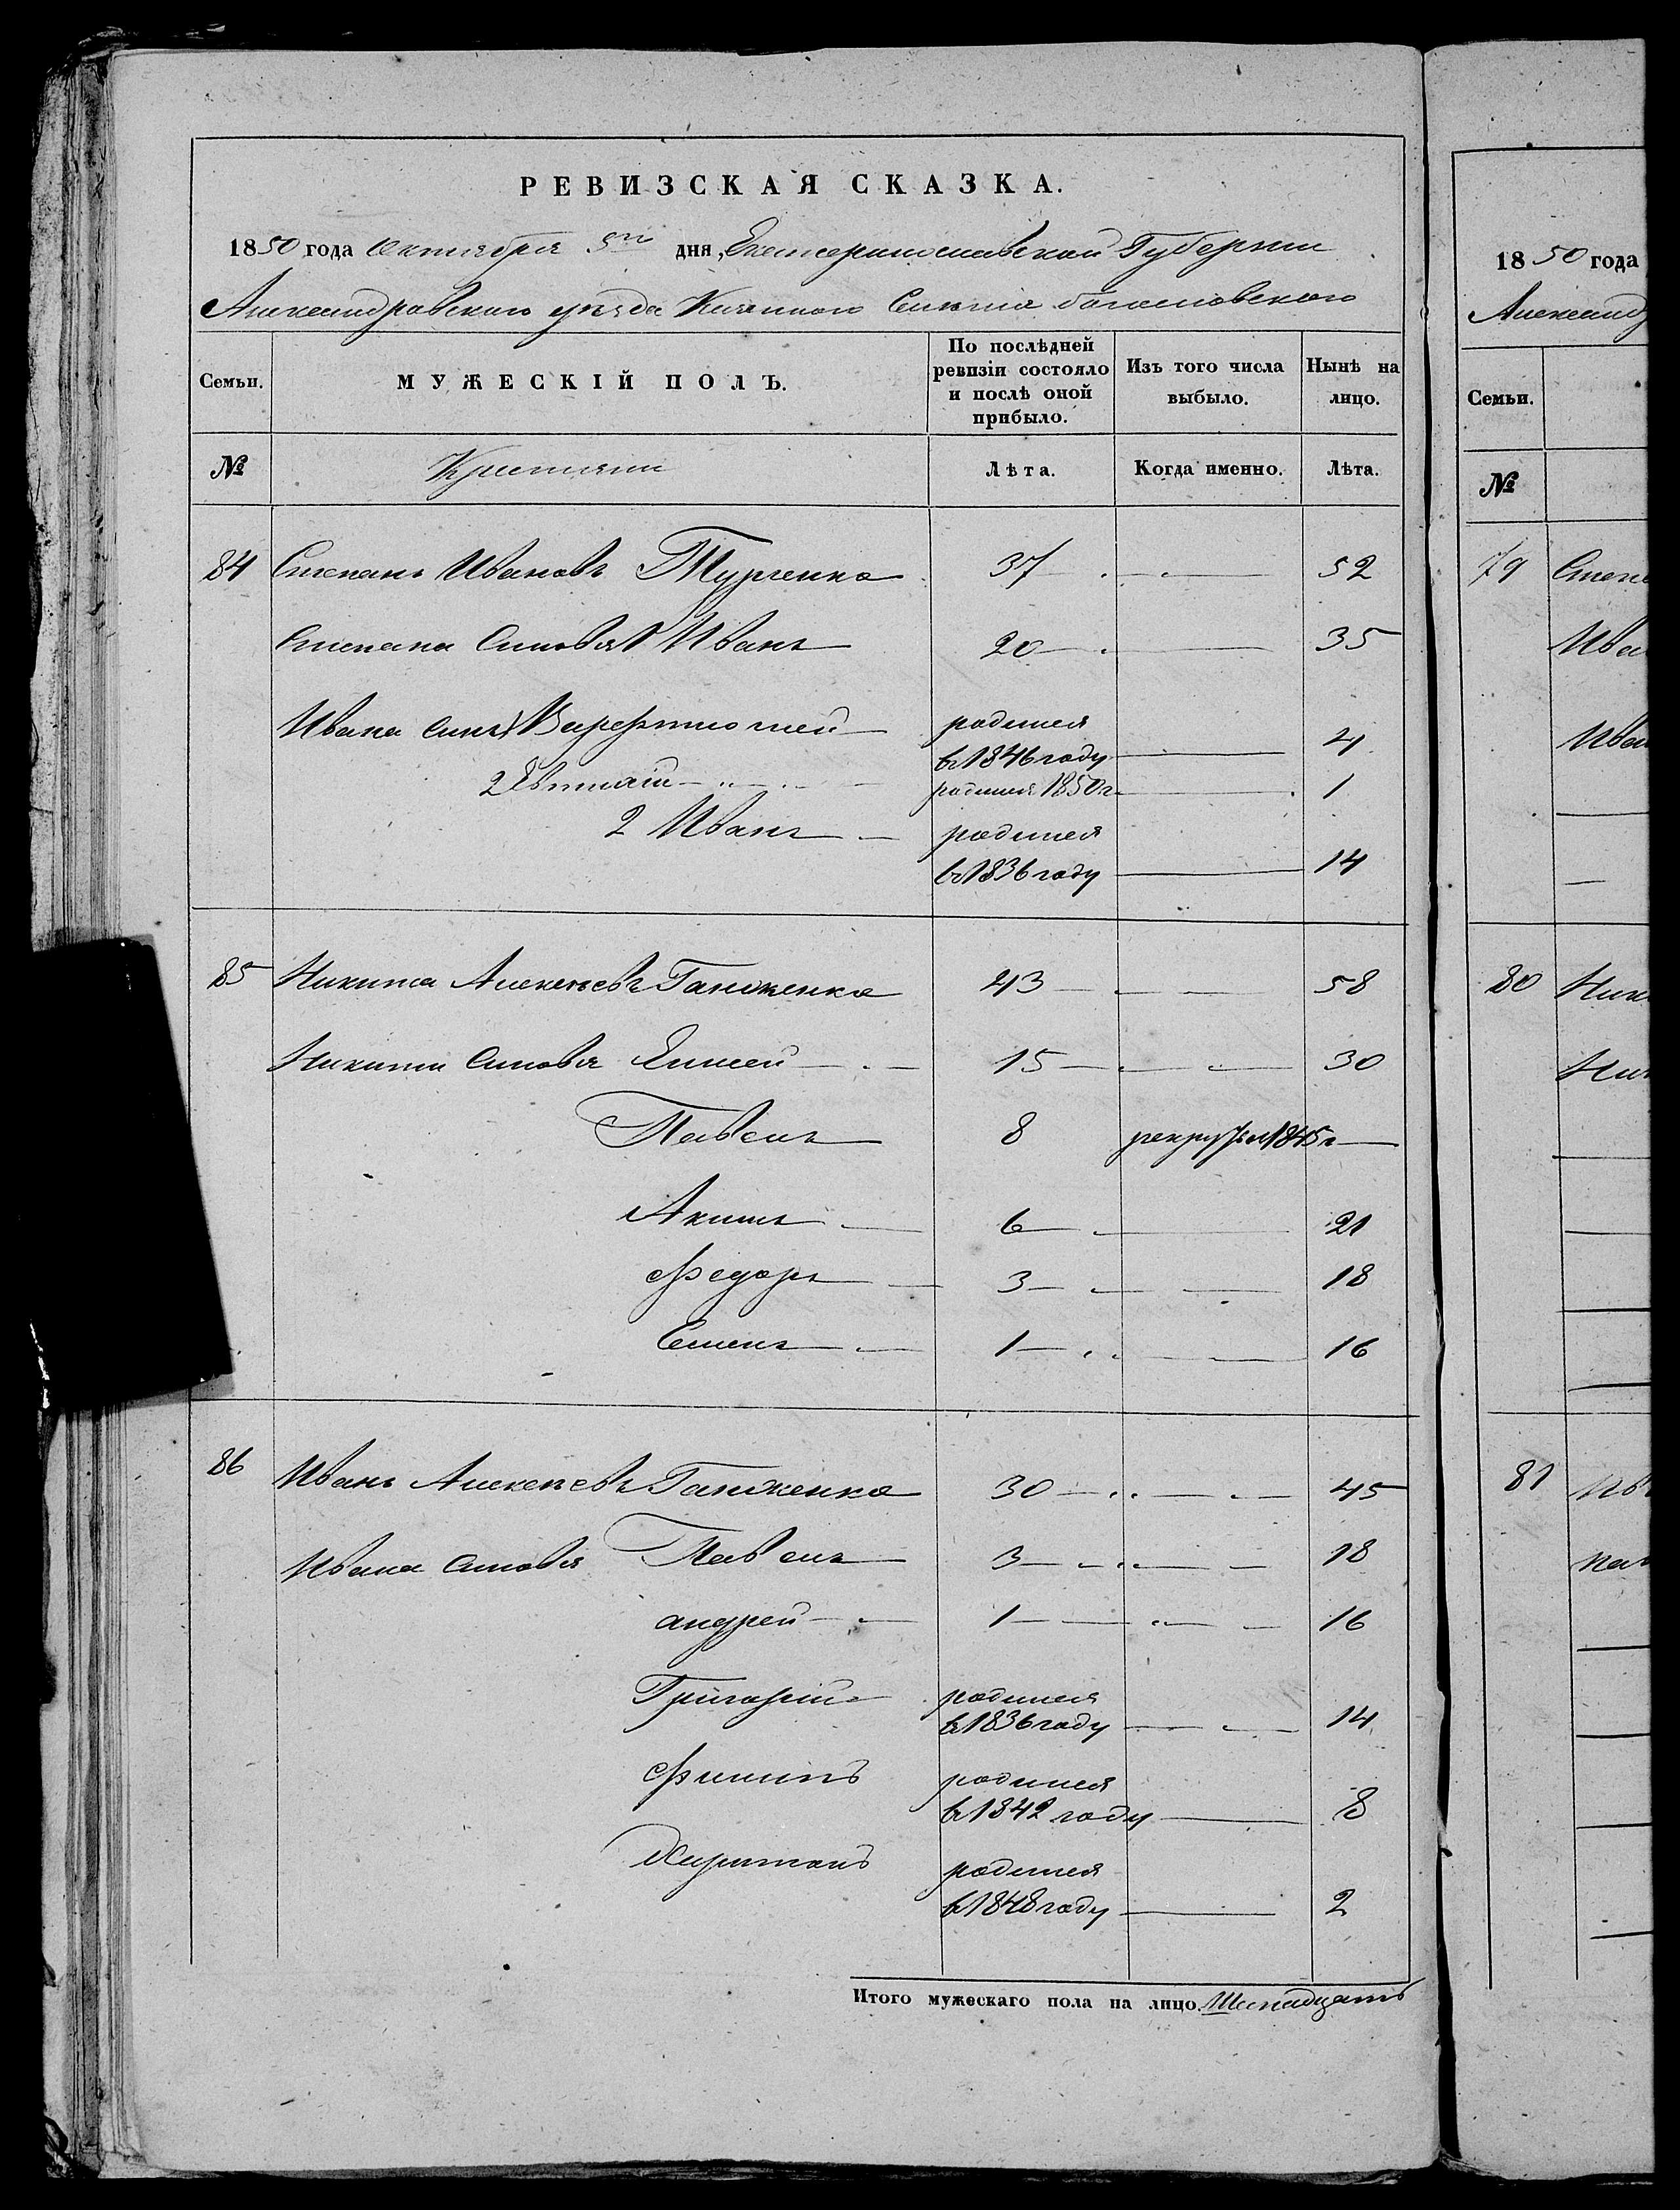 РЕВИЗСКАЯ СКАЗКА.
1850 года Октября 5го дня, Екатеринославской Губернии
Александровского уезда Казенного Селения богословского
Семьи. МУЖЕСКІЙ ПОЛЪ. По послѣдней ревизіи состояло и послѣ оной прибыло. Изъ того числа выбыло. Нынѣ на лицо.
№ Крестьяне Лѣта. Когда именно. Лѣта.
84 Степанъ Ивановъ 37 52
Степана Сыновья 1 Иванъ 20 35
Ивана Сынъ 1 родился
въ 1846 году 4
2 Евтихій родился 1850 г 1
2 Иванъ родился
въ 1836 году 14
85 Никита Алексѣевъ Ганженко 43 58
Никиты Сыновья Елисей 15 30
Павелъ 8 1845 г
Акимъ 6 21
Федоръ 3 18
Семенъ 1 16
86 Иванъ Алексѣевъ Ганженко 30 45
Ивана Сыновья Павелъ 3 18
андрей 1 16
Григорій родился
въ 1836 году 14
Филипъ родился
въ 1842 году 8
Харитонъ родился
въ 1848 году 2
Итого мужескаго пола на лицо. Шеснадцать
1850 года
Александ
Семьи.
№
79 Степ
Ива
Ива
80 Ник
Ник
81 Ив